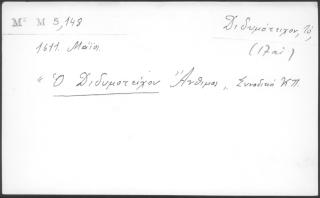 Μ² Μ 5,148
Διδυμότειχον, Τό,
(17 αἰ)
1611. Μαΐῳ.
" Ὁ Διδυμοτείχου Ἄνθιμος „ Συνοδικά Κ/Π.